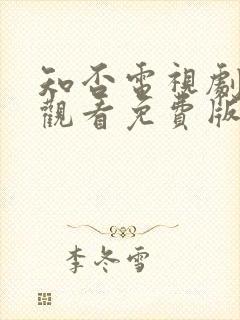 知否電視劇
觀看免費版
李冬雪